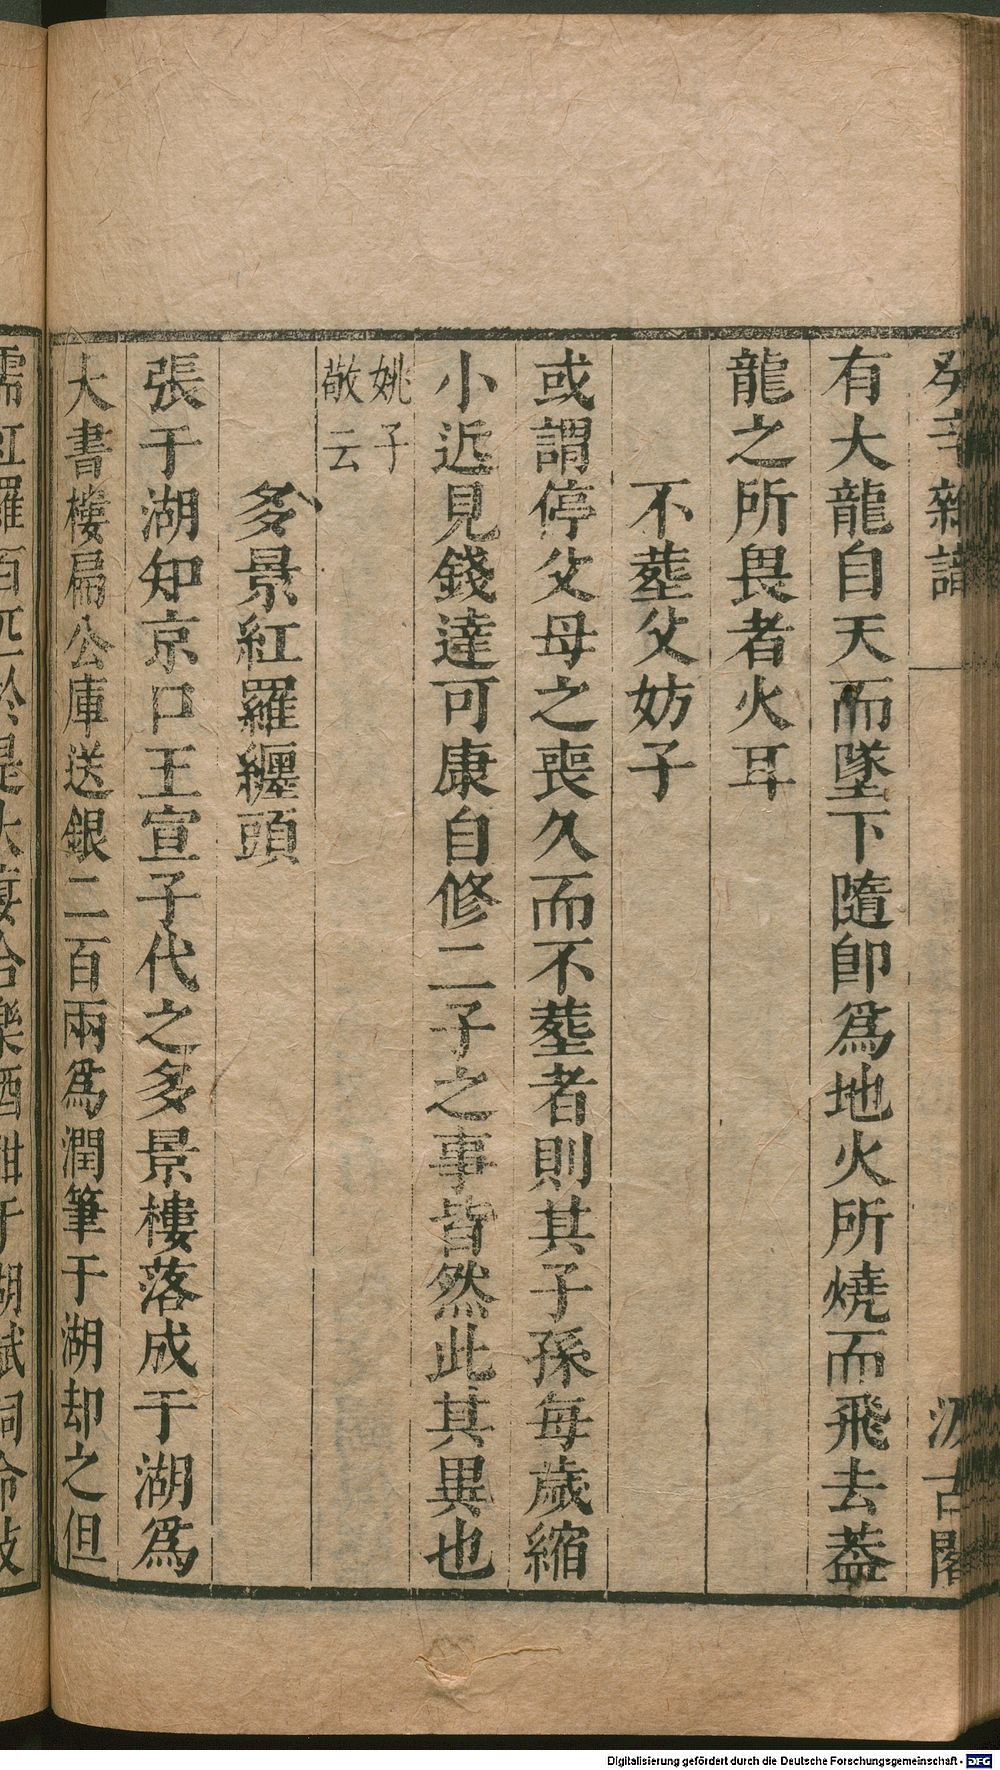 癸辛雜識 汲古閣
有大龍自天而墜下隨卽爲地火所燒而飛去葢
龍之所畏者火耳
不塟父妨子
或謂停父母之喪久而不塟者則其子孫每歲縮
小近見錢達可康自修二子之事皆然此其異也
姚子
敬云
多景紅羅纏頭
張于湖知京口王宣子代之多景樓落成于湖爲
大書樓扁公庫送銀二百兩爲潤筆于湖却之但
需紅羅百匹於是大宴合樂酒酣于湖賦詞命妓
Digitalisierung gefördert durch die Deutsche Forschungsgemeinschaft - DFG